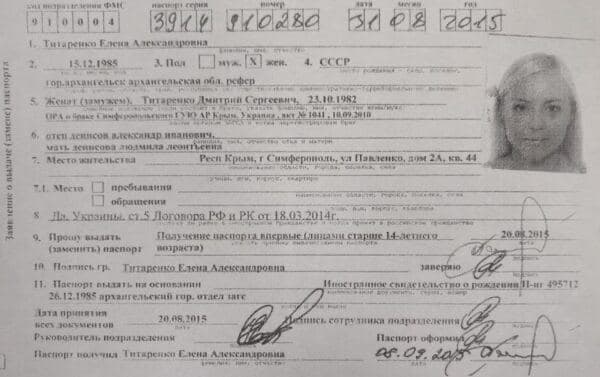 код подразделения ФМС паспорт серия номер дата месяц год
910004 3914 910280 31 08 2015
1. Титаренко Елена Александровна
фамилия, имя, отчество
2. 15.12.1985 3. Пол муж. X жен. 4. СССР
гор.архангельск архангельская обл. рсфср
5. Женат (замужем), Титаренко Дмитрий Сергеевич, 23.10.1982
ОРА о браке Симферопольского ГУЮ АР Крым, Украина , акт № 1041 , 10.09.2010
6. отец денисов александр иванович,
мать денисова людмила леонтьевна
7. Место жительства Респ Крым, г Симферополь, ул Павленко, дом 2А, кв. 44
7.1. Место пребывания
обращения
8. Да. Украины. ст.5 Договора РФ и РК от 18.03.2014г.
9. Прошу выдать Получение паспорта впервые (лицами старше 14-летнего 20.08.2015
(заменить) паспорт возраста)
10. Подпись гр. Титаренко Елена Александровна заверяю
11. Паспорт выдать на основании Иностранное свидетельство о рождении II-иг 495712
26.12.1985 архангельский гор. отдел загс
Дата принятия 20.08.2015 Подпись сотрудника подразделения
всех документов
Руководитель подразделения Паспорт оформил
Паспорт получил Титаренко Елена Александровна 08.09.2015
Заявление о выдаче (замене) паспорта